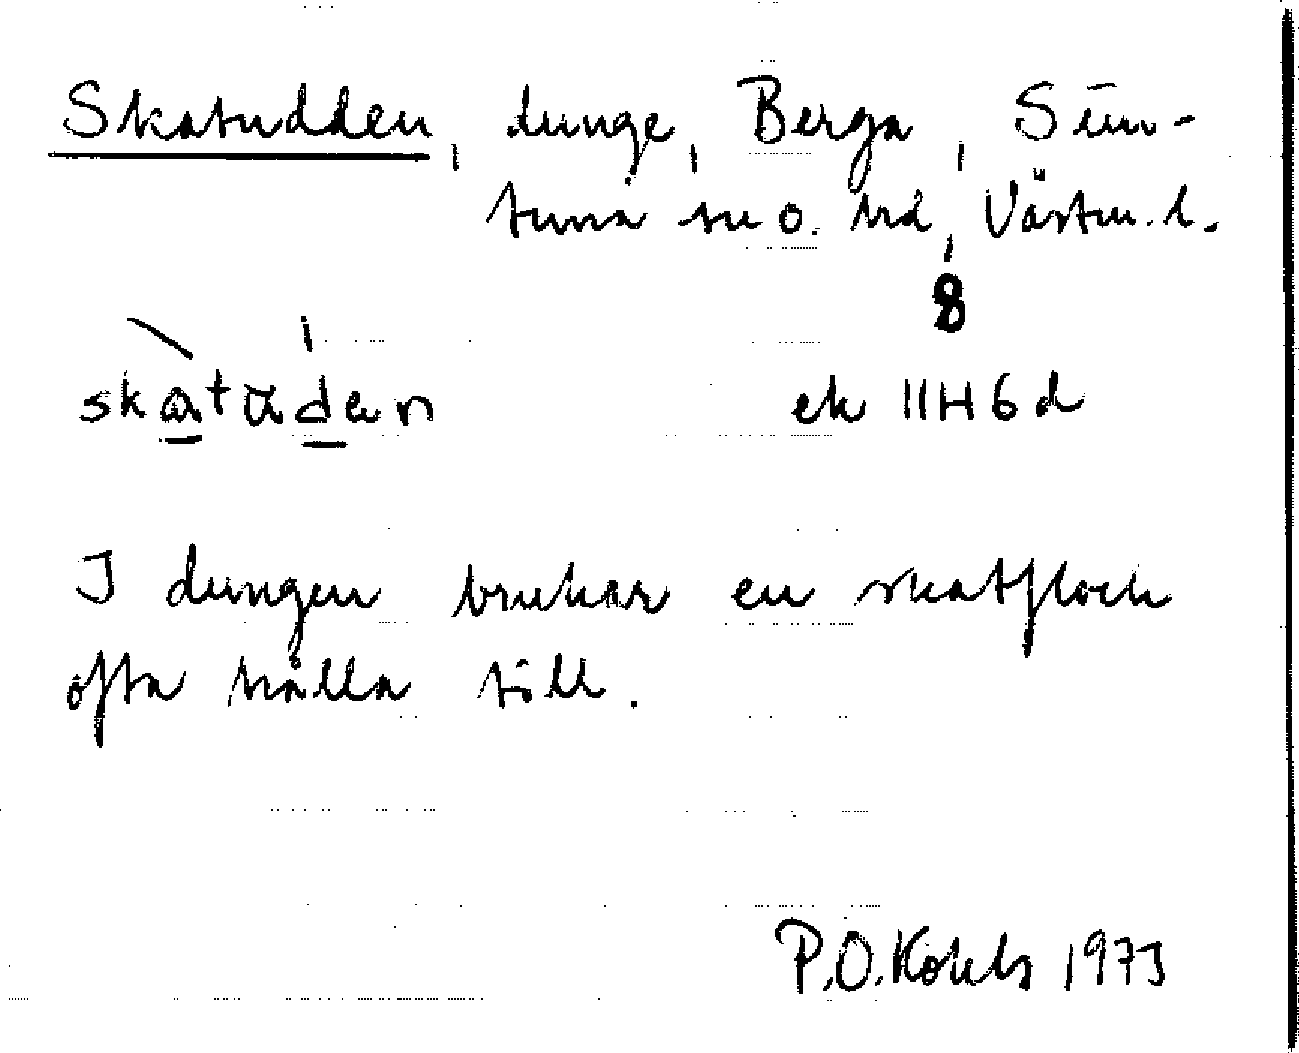 Skatudden, dunge, Berga, Sim-
tuna sn o. hd, Västm. l.
8
skatuden ek 11H6d
I dungen brukar en skatflock
ofta hålla till.
P.O. Kokts 1973